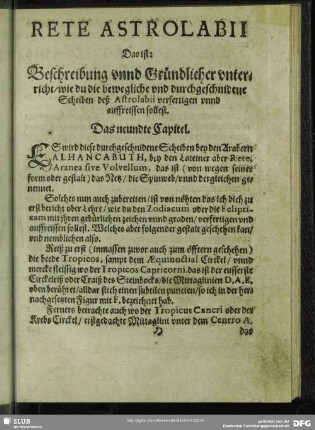 RETE ASTROLABII
Das ist:
Beschreibung vnnd Gründlicher vnter-
richt/wie du die bewegliche vnd durchgeschnidene
Scheiben deß Astrolabii verfertigen vnnd
auffreissen sollest.
Das neundte Capitel.
ES wird diese durchgeschnidene Scheiben bey den Arabern
ALHANCABUTH, bey den Lateiner aber Rete,
Aranea sive Volvellum, das ist (von wegen seiner
form oder gestalt) das Netz/ die Spinweb/vnnd dergleichen ge-
nennet.
Solches nun auch zubereiten/ist von nöhten das ich dich zu
erst bericht oder Lehre/wie du den Zodiacum oder die Eclipti-
cam mit ihren gebürlichen zeichen vnnd graden/verfertigen vnd
auffreissen sollest. Welches aber folgender gestalt geschehen kan/
vnd nemblichen also.
Reiß zu erst (inmassen zuvor auch zum öfftern geschehen)
die beede Tropicos, sampt dem Æquinoctial Circkel/ vnnd
mercke fleissig wo der Tropicus Capricorni, das ist der eusserste
Circkelriß oder Craiß des Steinbocks/die Mittaglinien D, A, E,
oben berührt/alldar stich einen subtilen puncten/so ich in der her-
nachgesetzten Figur mit F. bezeichnet hab.
Ferners betrachte auch wo der Tropicus Cancri oder des
Krebs Circkel/ erstgedachte Mittaglini vnter dem Centro A.
das
SLUB
DFG